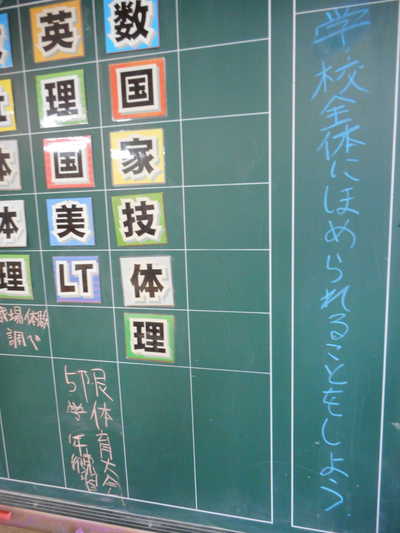 学校全体にほめられることをしよう
数
国
家
技
体
理
英
理
国
美
LT
5限体育大会
学年練習
体
体
理
場体験
調べ